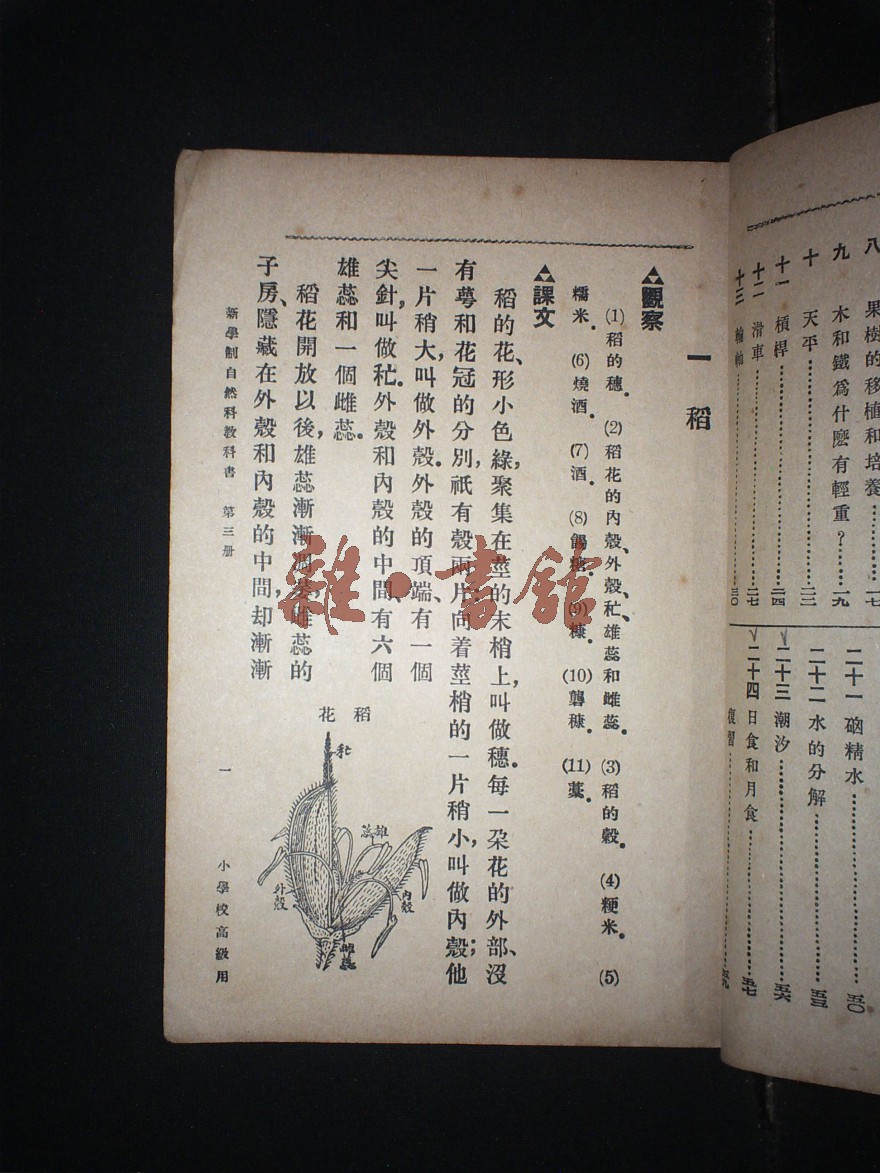 八　果樹的移植和培養…………一七
九　木和鐵爲什麽有輕重？……一九
十　天平…………二二
十一　槓桿…………二四
十二　滑車…………二七
十三　輪軸…………三〇
二十一　硇精水…………五〇
二十二　水的分解…………五三
二十三　潮汐…………五六
二十四　日食和月食…………五七
復習…………五九
一　稻
觀察
(1)稻的穗。(2)稻花的內殼、外殼、秅、雄蕊和雌蕊。(3)稻的穀。(4)粳米。(5)
糯米。(6)燒酒。(7)酒。(8)餳糖。(9)糠。(10)礱糠。(11)藁。
課文
稻的花、形小色綠，聚集在莖的末梢上，叫做穗。每一朵花的外部、沒
有萼和花冠的分別，祇有殼兩片，向着莖梢的一片稍小，叫做內殼；他
一片稍大，叫做外殼。外殼的頂端、有一個
尖針，叫做秅。外殼和內殼的中間、有六個
雄蕊和一個雌蕊。
稻花開放以後，雄蕊漸漸凋萎，雌蕊的
子房、隱藏在外殼和內殼的中間，却漸漸
稻花
秅
雄蕊
內殼
外殼
雌蕊
新學制自然科教科書　第三册
一
小學校高級用
雜·書館